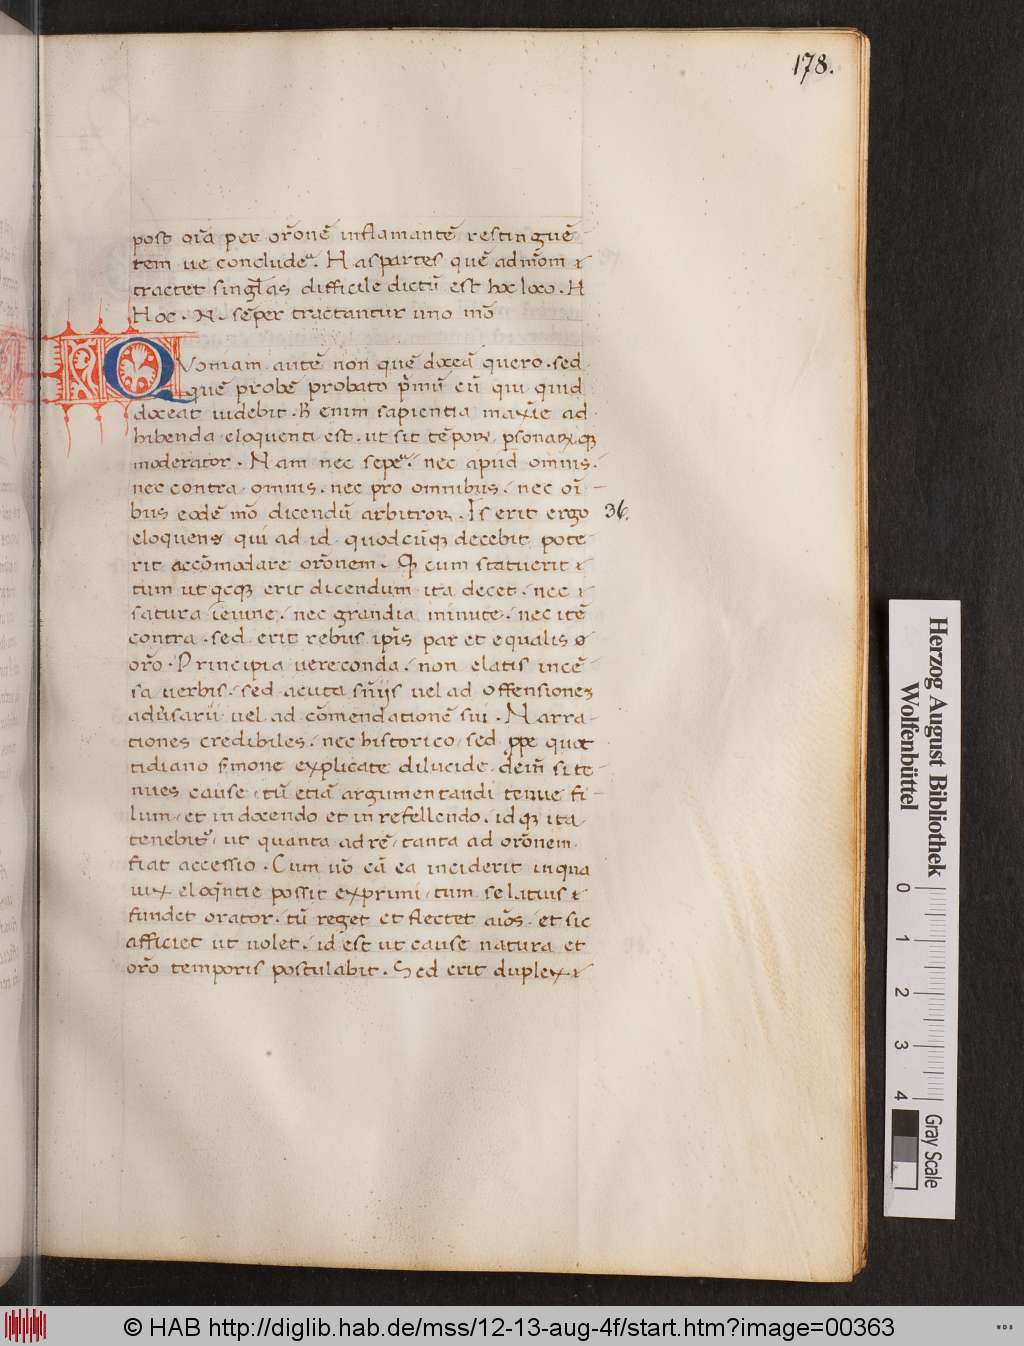 178.
post oı̄a per or̄onē inflamantē restinguē
tem ue conclude͛. Has partes quē admōm ⁊
tractet singl̄as difficile dictū est hoc loco. N
Hoc. N. sēper tractantur uno mō
Quoniam autē non quē doceā quero. sed
quē probē probato p̄mū eū qui quid
doceat uidebit. B enim sapientia maxı̄e ad
hibenda eloquenti est. ut sit tēporꝝ psonarꝝqꝫ
moderator. Nam nec sepe͛. nec apud omnis.
nec contra omnis. nec pro omnibus. nec oı̄
bus eodē mō dicendū arbitror. Is erit ergo 36.
eloquens qui ad id quodcūqꝫ decebit pote
rit accōmodare or̄onem. Q cum statuerit ⁊
tum ut qcqꝫ erit dicendum ita decet. nec ⁊
satura ieiune. nec grandia minute. nec itē
contra. sed erit rebus ip̄is par et equalis
or̄o. Principia uereconda. non elatis incē
sa uerbis. sed acuta sn̄ijs uel ad offensionez
adu͛sarii uel ad cōmendationē sui. Narra
tiones credibiles. nec historico sed ꝓpe quot
tidiano s͛mone explicate dilucide. dein̄ si te
nues cause tū etiā argumentandi tenue fi
lum et in docendo et in refellendo. idqꝫ ita
tenebit͛. ut quanta ad rē tanta ad or̄onem
fiat accessio. Cum uō cā ea inciderit in qua
uix eloqntie possit exprimi tum se latius ⁊
fundet orator. tū reget et flectet aiōs. et sic
afficiet ut uolet. id est ut cause natura et
or̄o temporis postulabit. Sed erit duplex ⁊
Herzog August Bibliothek
Wolfenbüttel
0 1 2 3 4
Gray Scale
© HAB http://diglib.hab.de/mss/12-13-aug-4f/start.htm?image=00363